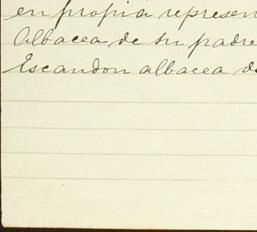 en propia represen
Albacea de su padre
Escandon albacea de